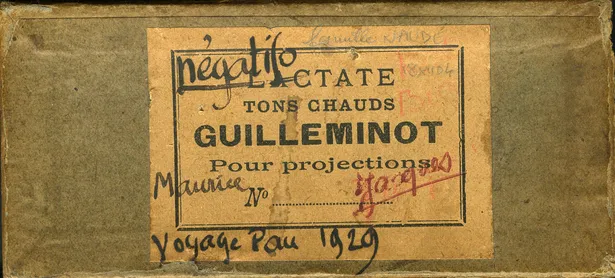 négatifs
LACTATE
TONS CHAUDS
GUILLEMINOT
Pour projections
Maurice
Jacques
Nº
Voyage Pau 1929